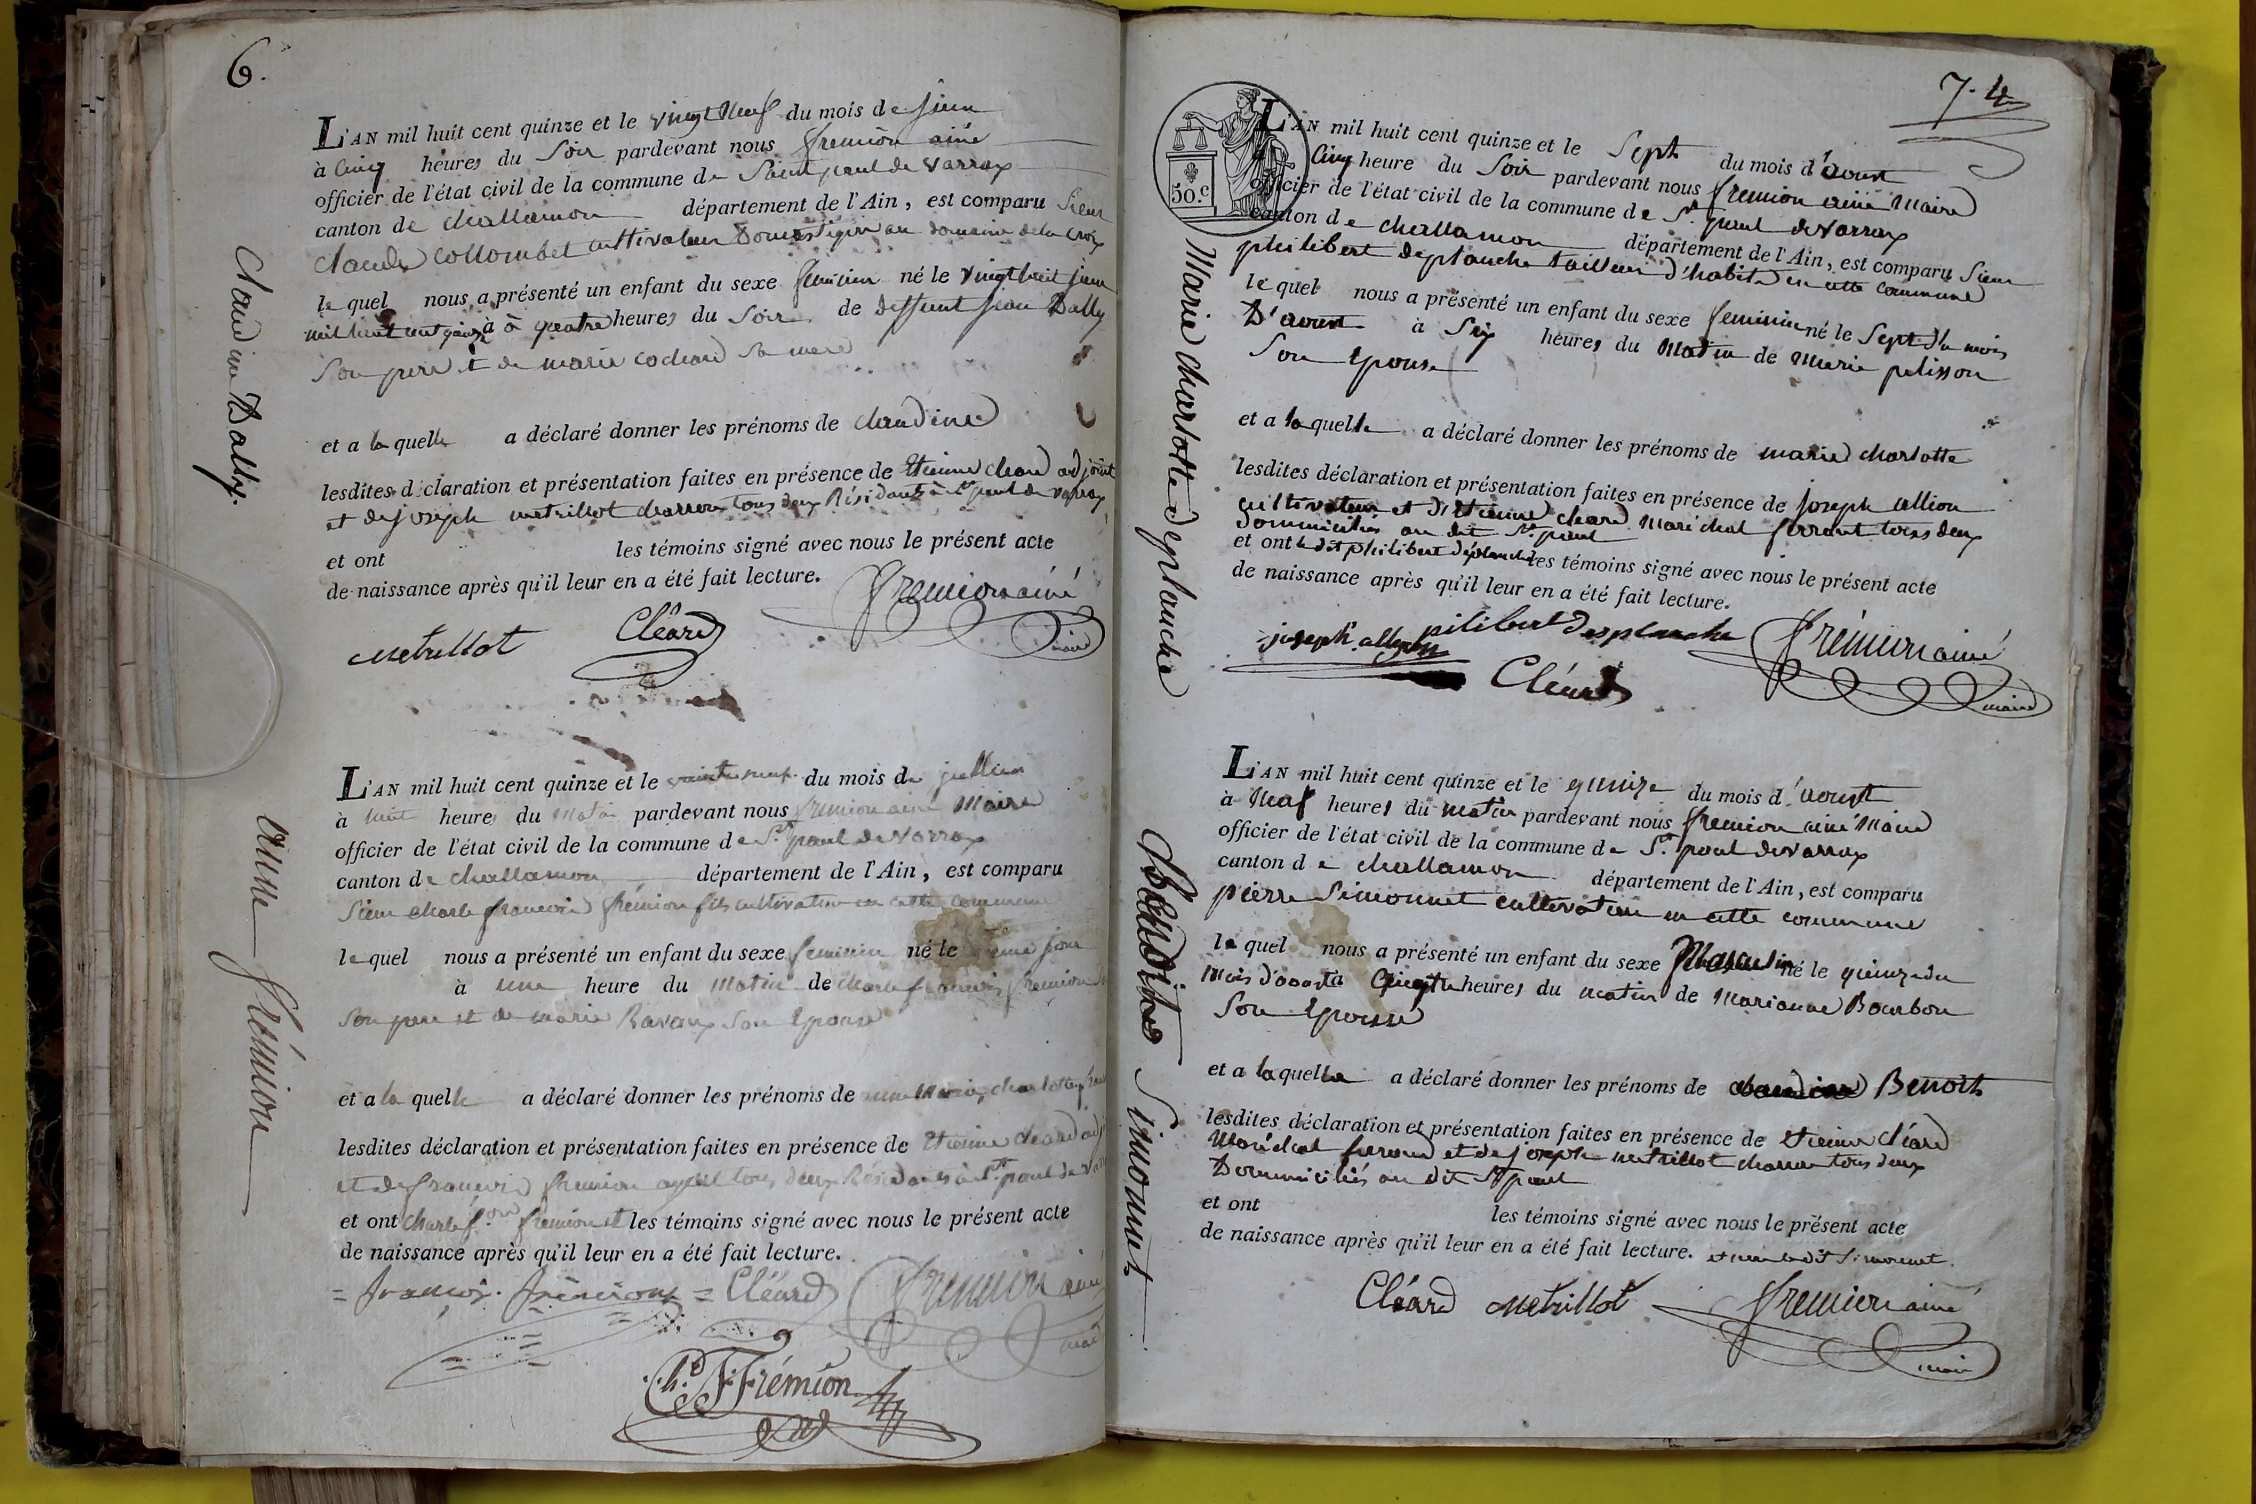 6.
L'AN mil huit cent quinze et le vingt neuf du mois de juin
à cinq heures du Soir pardevant nous fremion ainé
officier de l'état civil de la commune de Saint paul de varrax
canton de challamon département de l'Ain, est comparu Sieur
claude collombet cultivateur Domestique au domaine de la croix
le quel nous a présenté un enfant du sexe feminin né le vingt huit juin
mil huit cent quinze à quatre heures du Soir de deffunt jean Dalby
Son pere et de marie cochard Sa mere
et a la quelle a déclaré donner les prénoms de claudine
lesdites déclaration et présentation faites en présence de Etienne cleard adjoint
et de joseph metrillot charron tous deux Résidants à St paul de varax
et ont les témoins signé avec nous le présent acte
de naissance après qu'il leur en a été fait lecture.
fremion ainé
maire
metrillot Cléard
Claudine Dalby.
L'AN mil huit cent quinze et le vainte neuf du mois de juillier
à huit heures du Matin pardevant nous fremion ainé Maire
officier de l'état civil de la commune de St paul de varrax
canton de challamon département de l'Ain, est comparu
Sieur charle francois frémion fils cultivateur en cette commune
le quel nous a présenté un enfant du sexe feminin né le même jour
à une heure du Matin de charle francois fremion
Son pere et de marie Ravaux Son Epouse
et a la quelle a déclaré donner les prénoms de anne Marie charlotte
lesdites déclaration et présentation faites en présence de Etienne cleard
et de francois fremion tous deux Résidants à St paul de
et ont charle f.ois fremion et les témoins signé avec nous le présent acte
de naissance après qu'il leur en a été fait lecture.
= francois. frémion = Cléard fremion ainé
maire
Ch. F Frémion
anne frémion
7. 4
50.c
L'AN mil huit cent quinze et le Sept du mois d'aoust
à Cinq heure du Soir pardevant nous fremion ainé Maire
officier de l'état civil de la commune de St paul de varrax
canton de challamon département de l'Ain, est comparu Sieur
philibert deplanche tailleur d'habit en cette commune
le quel nous a présenté un enfant du sexe feminin né le Sept du mois
D'aoust à Six heures du Matin de Marie pelisson
Son Epouse
et a la quelle a déclaré donner les prénoms de marie charlotte
lesdites déclaration et présentation faites en présence de joseph allion
cultivateur et d'Etienne cleard Maréchal ferrant tous deux
Domiciliés au dit St paul
et ont le dit philibert deplanche les témoins signé avec nous le présent acte
de naissance après qu'il leur en a été fait lecture.
joseph pilibert desplanche frémion ainé
Cléard maire
Marie charlotte deplanche
L'AN mil huit cent quinze et le quinze du mois d'aoust
à Neuf heures du matin pardevant nous fremion ainé Maire
officier de l'état civil de la commune de St paul de varrax
canton de challamon département de l'Ain, est comparu
pierre Simonnet cultivateur en cette commune
le quel nous a présenté un enfant du sexe Masculin né le quinze du
Mois d'aoust à heures du matin de Marianne Bourbon
Son Epouse
et a la quelle a déclaré donner les prénoms de Benoit
lesdites déclaration et présentation faites en présence de Etienne cléard
Maréchal ferrand et de joseph metrillot charron tous deux
Domiciliés au dit St paul
et ont les témoins signé avec nous le présent acte
de naissance après qu'il leur en a été fait lecture. et non le dit Simonnet
Cléard metrillot fremion ainé
maire
Benoite Simonnet